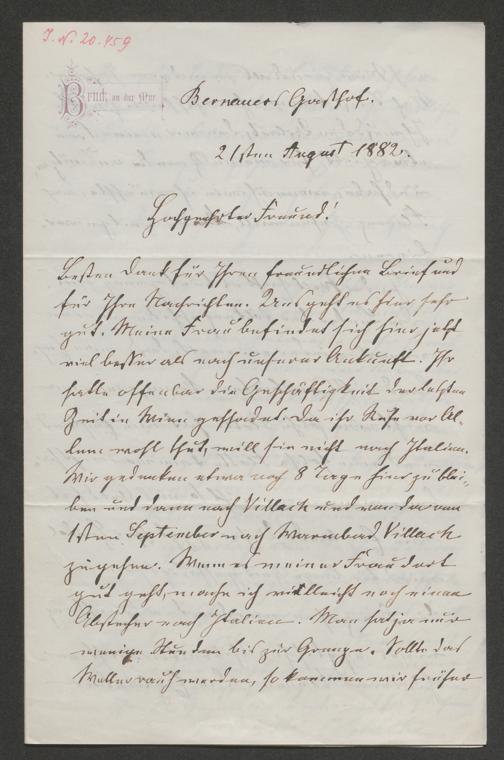 I. N. 20.459
Bruck an der Mur.
Bernauers Gasthof.
21sten August 1882.
Hochgeehrter Freund!
Besten Dank für Ihren freundlichen Brief und
für Ihre Nachrichten. Uns geht es hier sehr
gut. Meine Frau befindet sich hier jetzt
viel besser als nach unserer Ankunft. Ihr
hatte offenbar die Geschäftigkeit der letzten
Zeit in Wien geschadet. Da ihr Ruhe vor Al-
lem wohl thut, will sie nicht nach Italien.
Wir gedenken etwa noch 8 Tage hier zu blei-
ben und dann nach Villach und von da am
1sten September nach Warmbad Villach
zu gehen. Wenn es meiner Frau dort
gut geht, mache ich vielleicht noch einen
Abstecher nach Italien. Man hat ja nur
wenige Stunden bis zur Grenze. Sollte das
Wetter rauh werden, so kommen wir früher